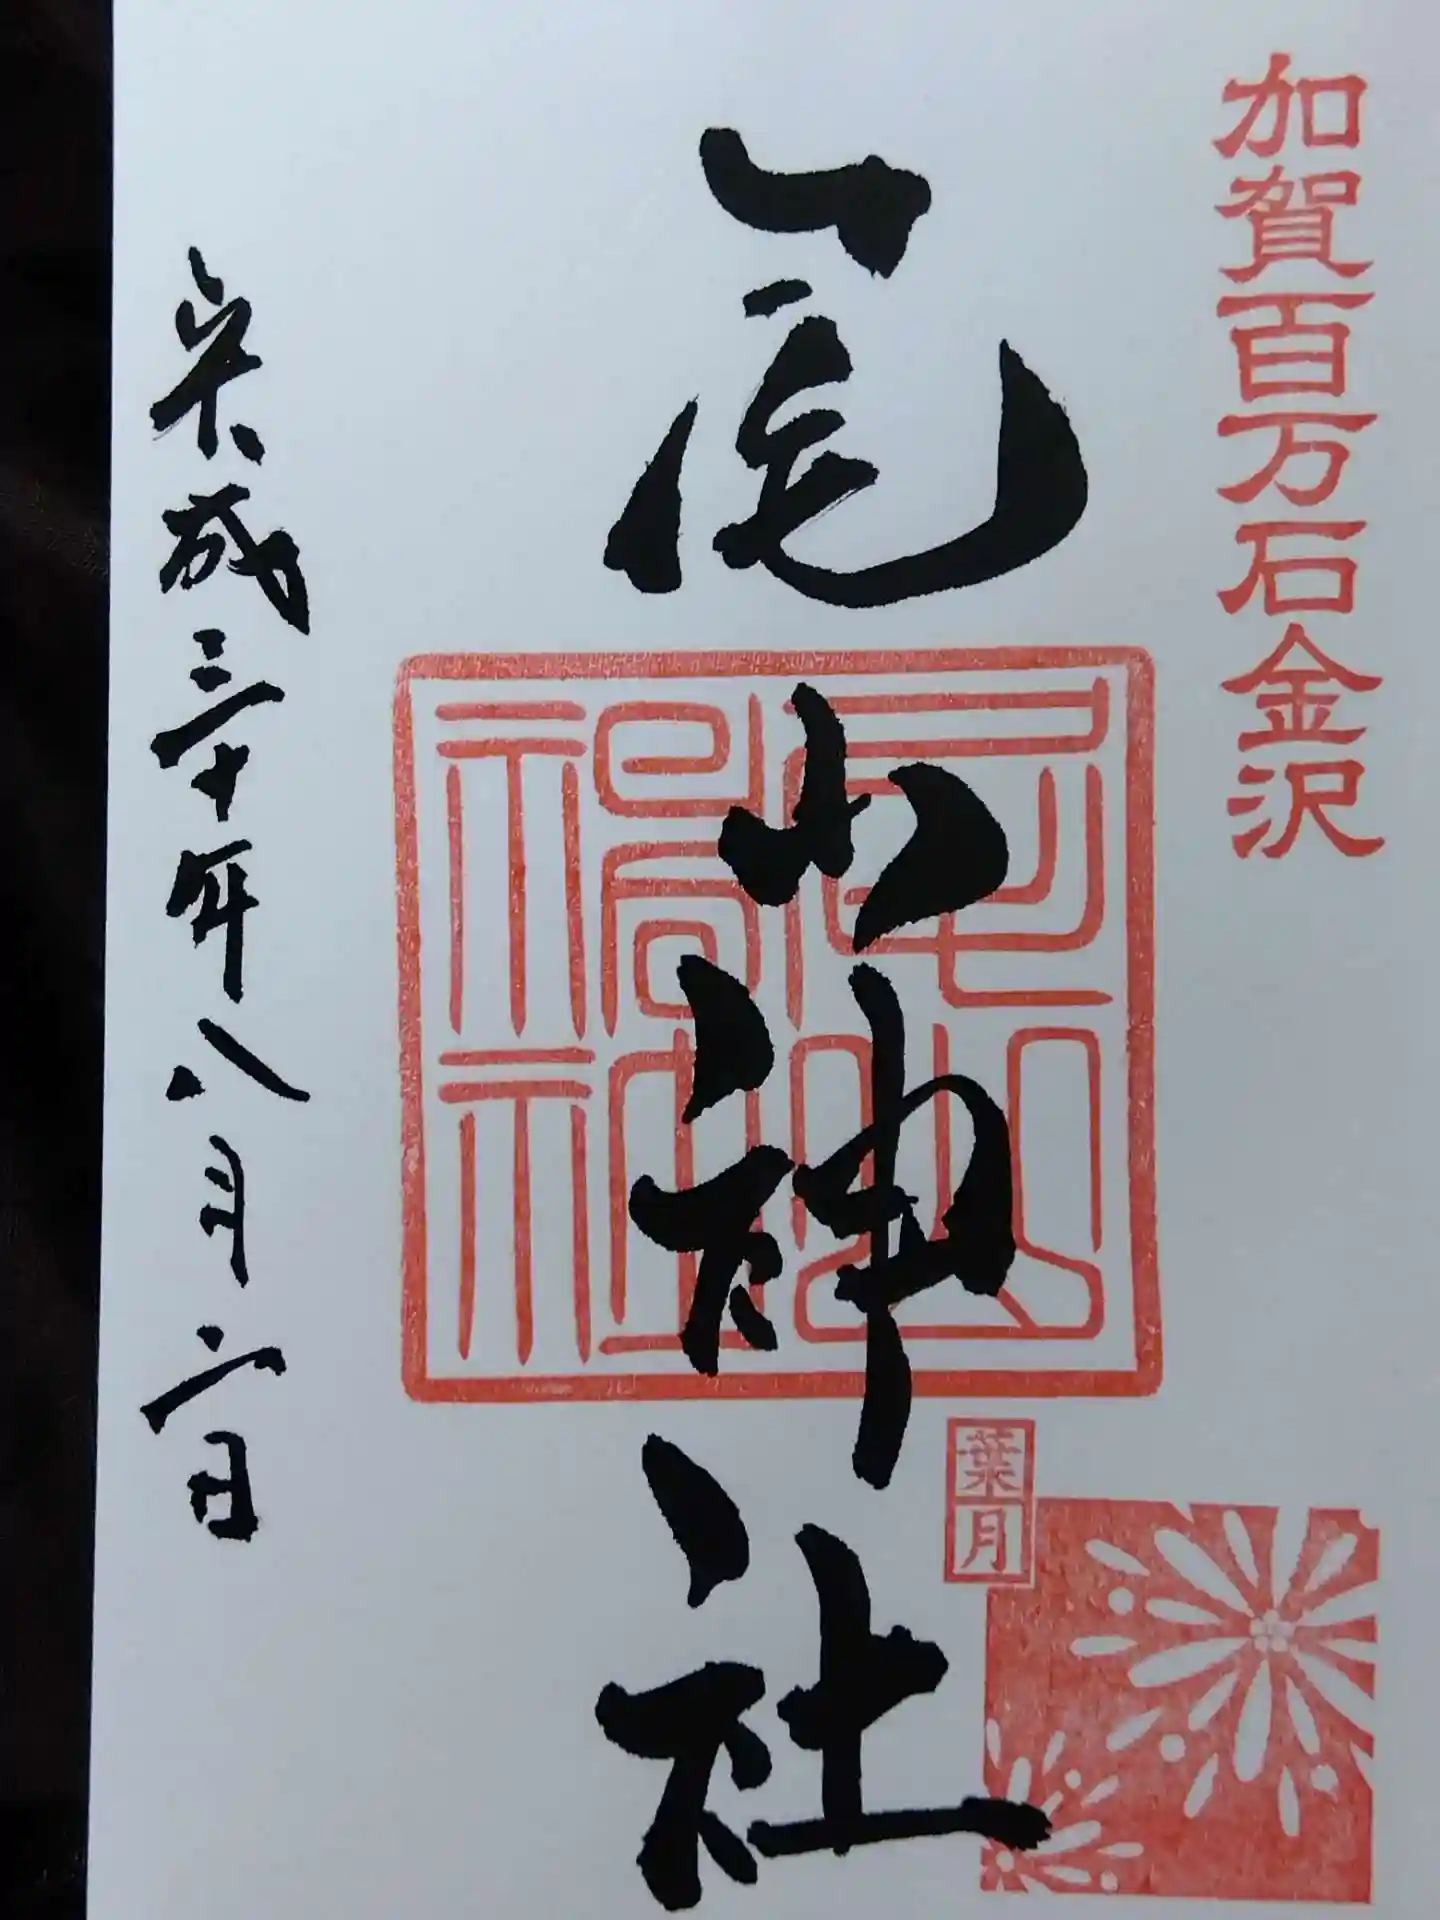 加賀百万石金沢
尾山神社
葉月
平成三十年八月六日